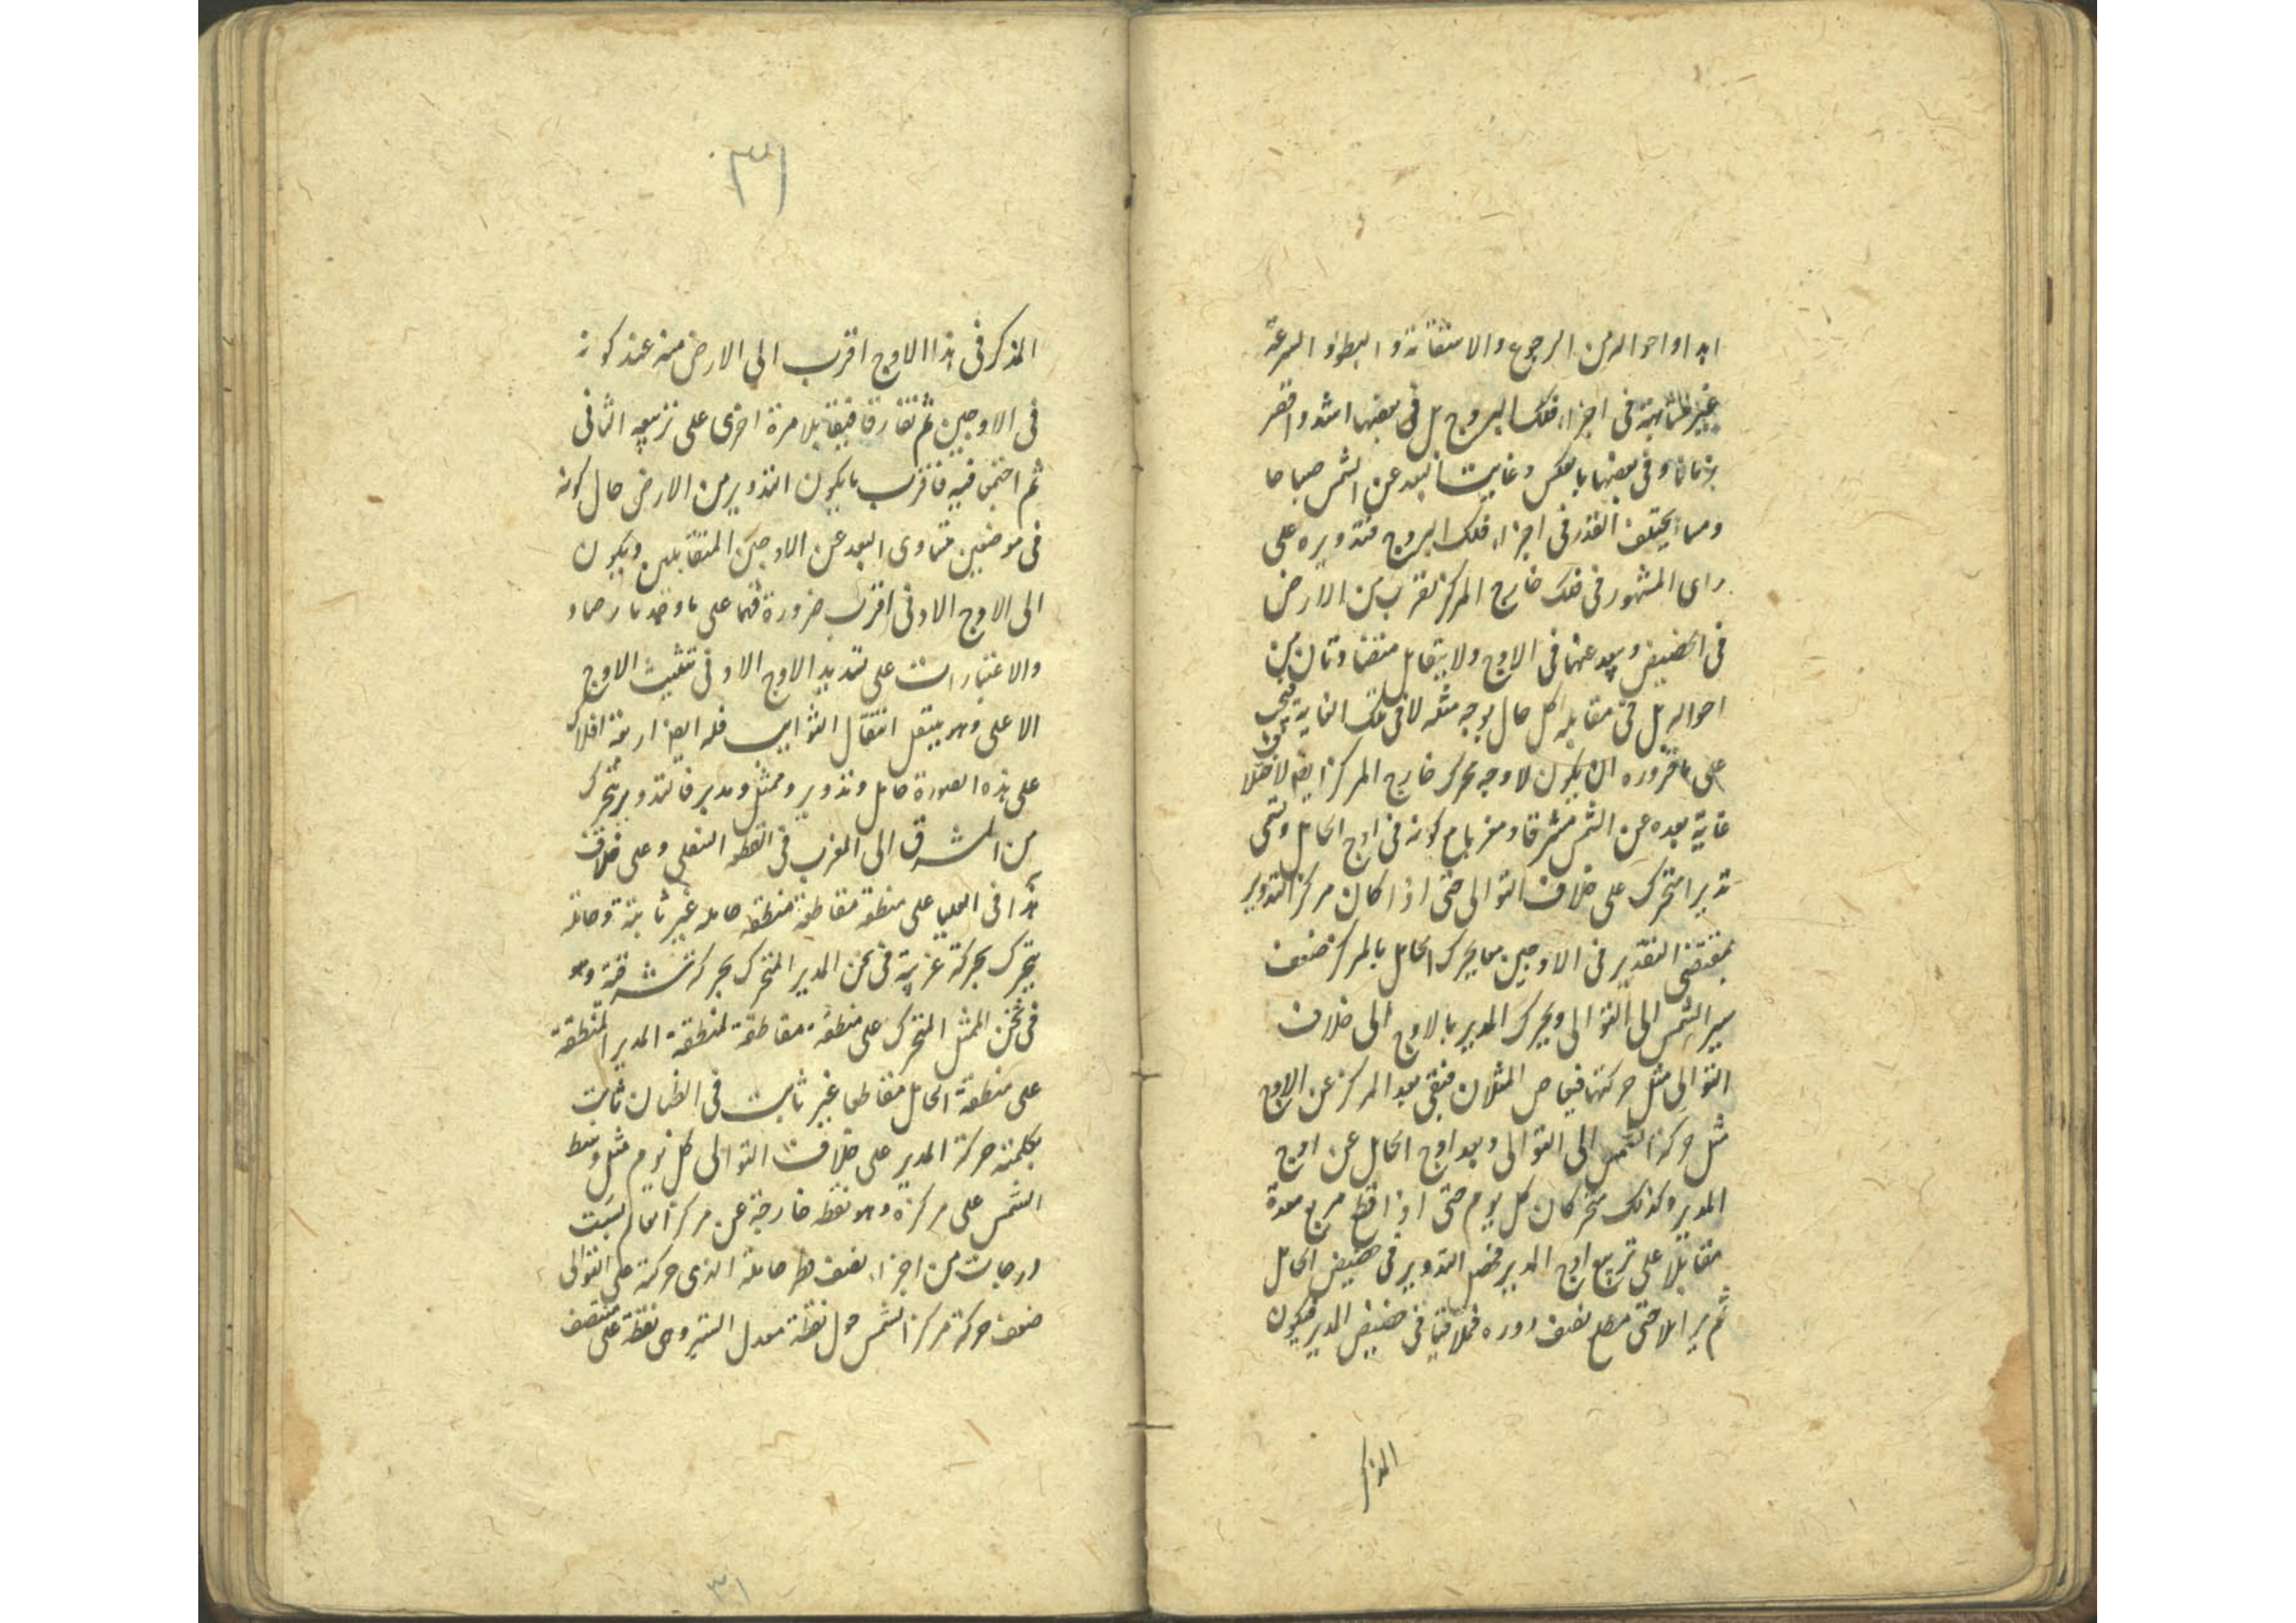 ابدا واحواله من الرجوع والاستقامة والبطؤ والسرعة
غير متشابهة فى اجزاء فلك البروج بل فى بعضها اشد واقصر
زمانا وفى بعضها بالعكس وغايت البعد عن الشمس صباحا
ومساء يختلف القدر فى اجزاء فلك البروج فتدويره على
راى المشهور فى فلك خارج المركز يقرب من الارض
فى الحضيض ويبعد عنها فى الاوج ولا يتقابل متضادتان من
احواله بل فى مقابله كل حال يوجد مثله لا فى تلك الغاية فيجب
على ما قرروه ان يكون لاوجه محرك خارج المركز ايضا
غاية بعده عن الشمس مشرقا ومغربا مع كونه فى اوج الحامل وتسمى
مديرا متحرك على خلاف التوالى حتى اذا كان مركز التدوير
بمقتضى التقدير فى الاوجين معا يحرك الحامل بالمركز ضعف
سير الشمس الى التوالى ويحرك المدير بالاوج الى خلاف
التوالى مثل حركتها فيقاص المثلان فيبقى بعد المركز عن الاوج
مثل حركة الشمس الى التوالى وبعد اوج الحامل عن اوج
المدير وكذلك متحركان كل يوم حتى اذا قطع مربع بعده
مقابلا على تربيع اوج المدير فحصل التدوير فى حضيض الحامل
ثم حتى قطع نصف دوره فتلاقيا فى حضيض المدير فيكون
المذكر
٣١
المذكر فى هذا الاوج اقرب الى الارض منه عند كونه
فى الاوجين ثم تفارقا فيتقابلا مرة اخرى على تربيعه الثانى
ثم اجتمعا فيه فاقرب ما يكون التدوير من الارض حال كونه
فى موضعين متساوى البعد عن الاوجين المتقابلين ويكون
الى الاوج الادنى اقرب ضرورة على ما وجد بارصاد
والاعتبارات على تسديد الاوج الادنى تثليث الاوج
الاعلى وهو ينتقل انتقال الثوابت فله ايضا اربعة افلاك
على هذه الصورة حامل وتدوير وممثل ومدير فالتدوير يتحرك
من المشرق الى المغرب فى القطعة السفلى وعلى خلاف
هذا فى العليا على منطقة مقاطعة منطقة حامله غير ثابتة وحامله
يتحرك بحركة غربية فى ثخن المدير المتحرك بحركة شرقية وهو
فى ثخن الممثل المتحرك على منطقة مقاطعة لمنطقة المدير المنطبقة
على منطقة الحامل مقاطعا غير ثابت فى الظمان ثابت
بكلمته حركة المدير على خلاف التوالى كل يوم مثل وسط
الشمس على مركزه وهو نقطة خارجة عن مركز العالم بست
درجات من اجزاء نصف قطر حامله الذى حركته على التوالى
ضعف حركة مركز الشمس حول نقطة معدل المسير وهى نقطة على منتصف
٣١